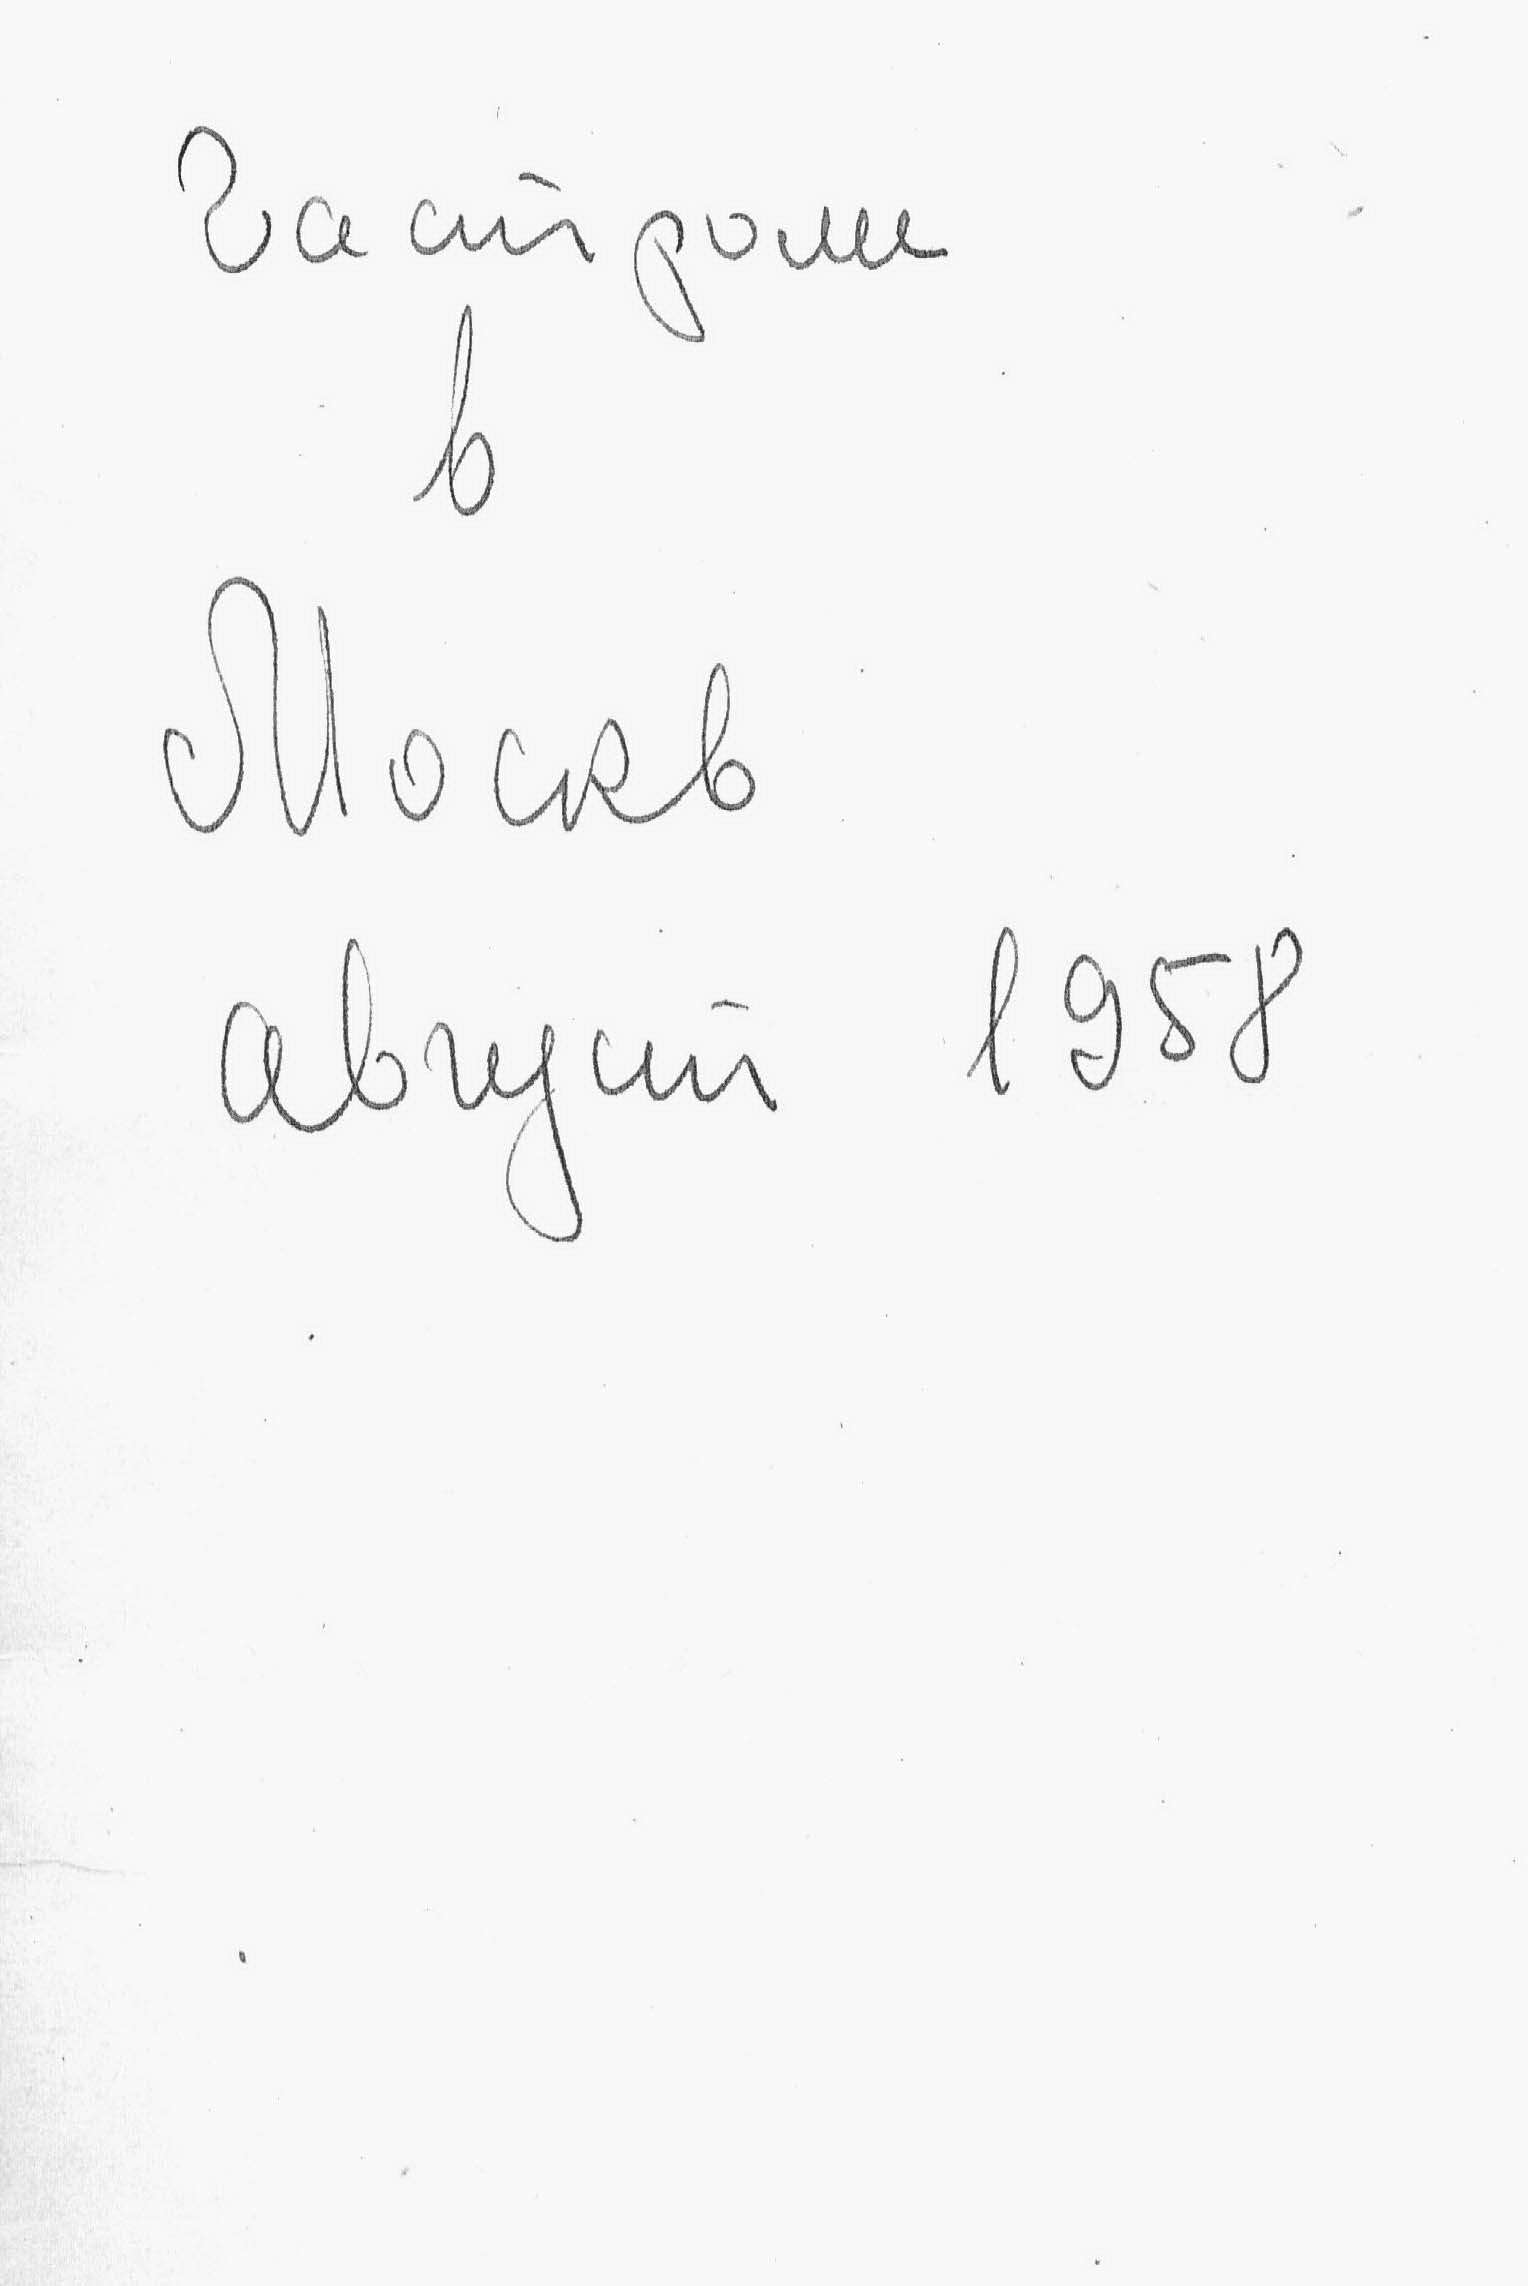 гастроли
в
Москв
август 1958